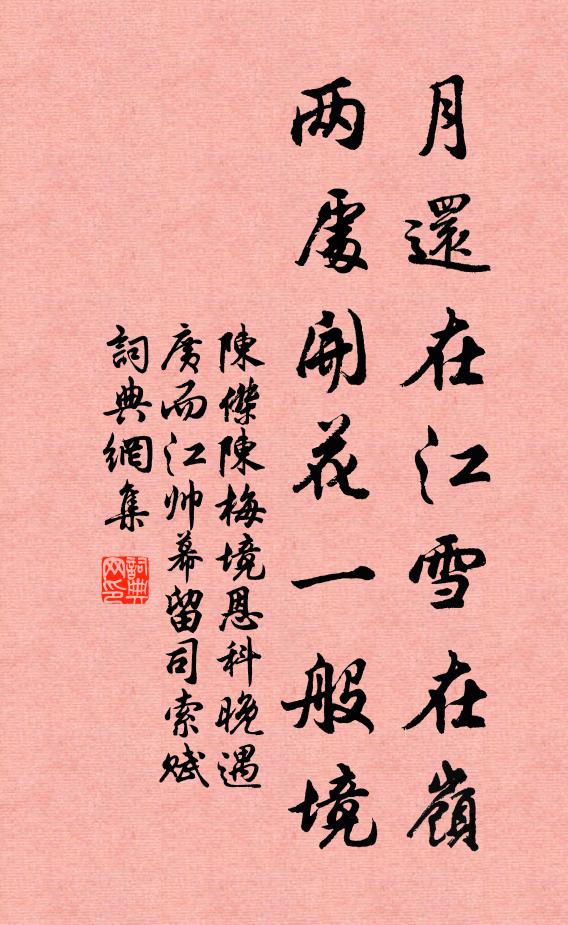 月還在江雪在嶺
两處開花一般境
陳傑陳梅境恩科晚遇
廣而江帅幕留司索赋
詞典網集
詞典网印